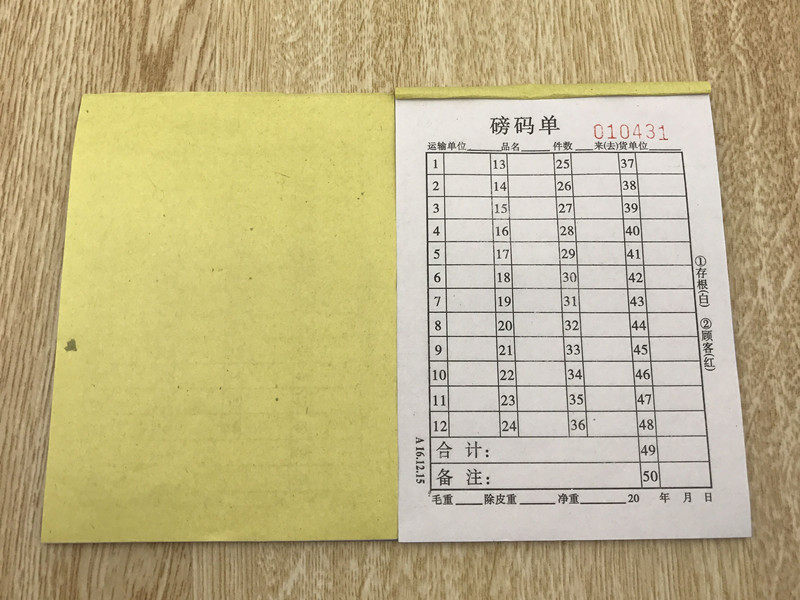 磅码单
010431
运输单位 品名 件数 来(去)货单位
1 13 25 37
2 14 26 38
3 15 27 39
4 16 28 40
5 17 29 41
6 18 30 42
7 19 31 43
8 20 32 44
9 21 33 45
10 22 34 46
11 23 35 47
12 24 36 48
合计: 49
备注: 50
毛重 除皮重 净重 20 年 月 日
①存根(白) ②顾客(红)
A 16.12.15